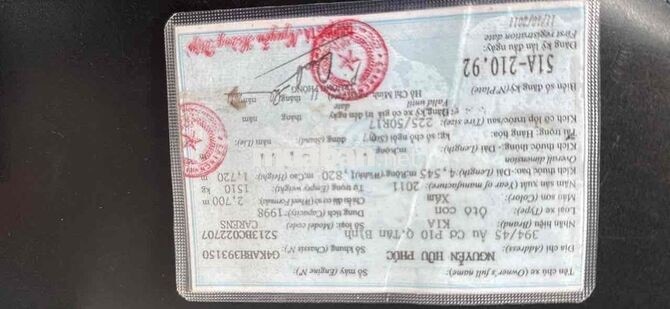 Tên chủ xe (Owner's full name): Số máy (Engine N°)
NGUYỄN HỮU PHÚC G4KABH393150
Địa chỉ (Address): Số khung (Chassis N°)
394/45 Âu Cơ P10 Q.Tân Bình 5213BC022707
Nhãn hiệu (Brand): KIA Số loại (Model code): CARENS
Loại xe (Type): Ôtô con Dung tích (Capacity): 1998
Màu sơn (Color): Xám Chiều dài cơ sở (Wheel Formula) 2,700 m
Năm sản xuất (Year of manufacture): 2011 Tự trọng (Empty weight) 1510 kg
Overall dimension
Kích thước bao: Dài (Length) 4,545 m; Rộng (Width) 1,820 m; Cao (Height) 1,720 m
Kích thước thùng: Dài (Length)
Tải trọng: Hàng Hóa
Số chỗ ngồi (Sit) 7 đứng (Stand) nằm (Lie)
Kích cỡ lốp sau/trước (Tire size): 225/50R17
Đăng ký xe có giá trị đến ngày tháng năm
Valid until date
Biển số đăng ký (N° Plate) Hồ Chí Minh
51A-210.92
Đăng ký lần đầu ngày
First registration date
11/10/2011